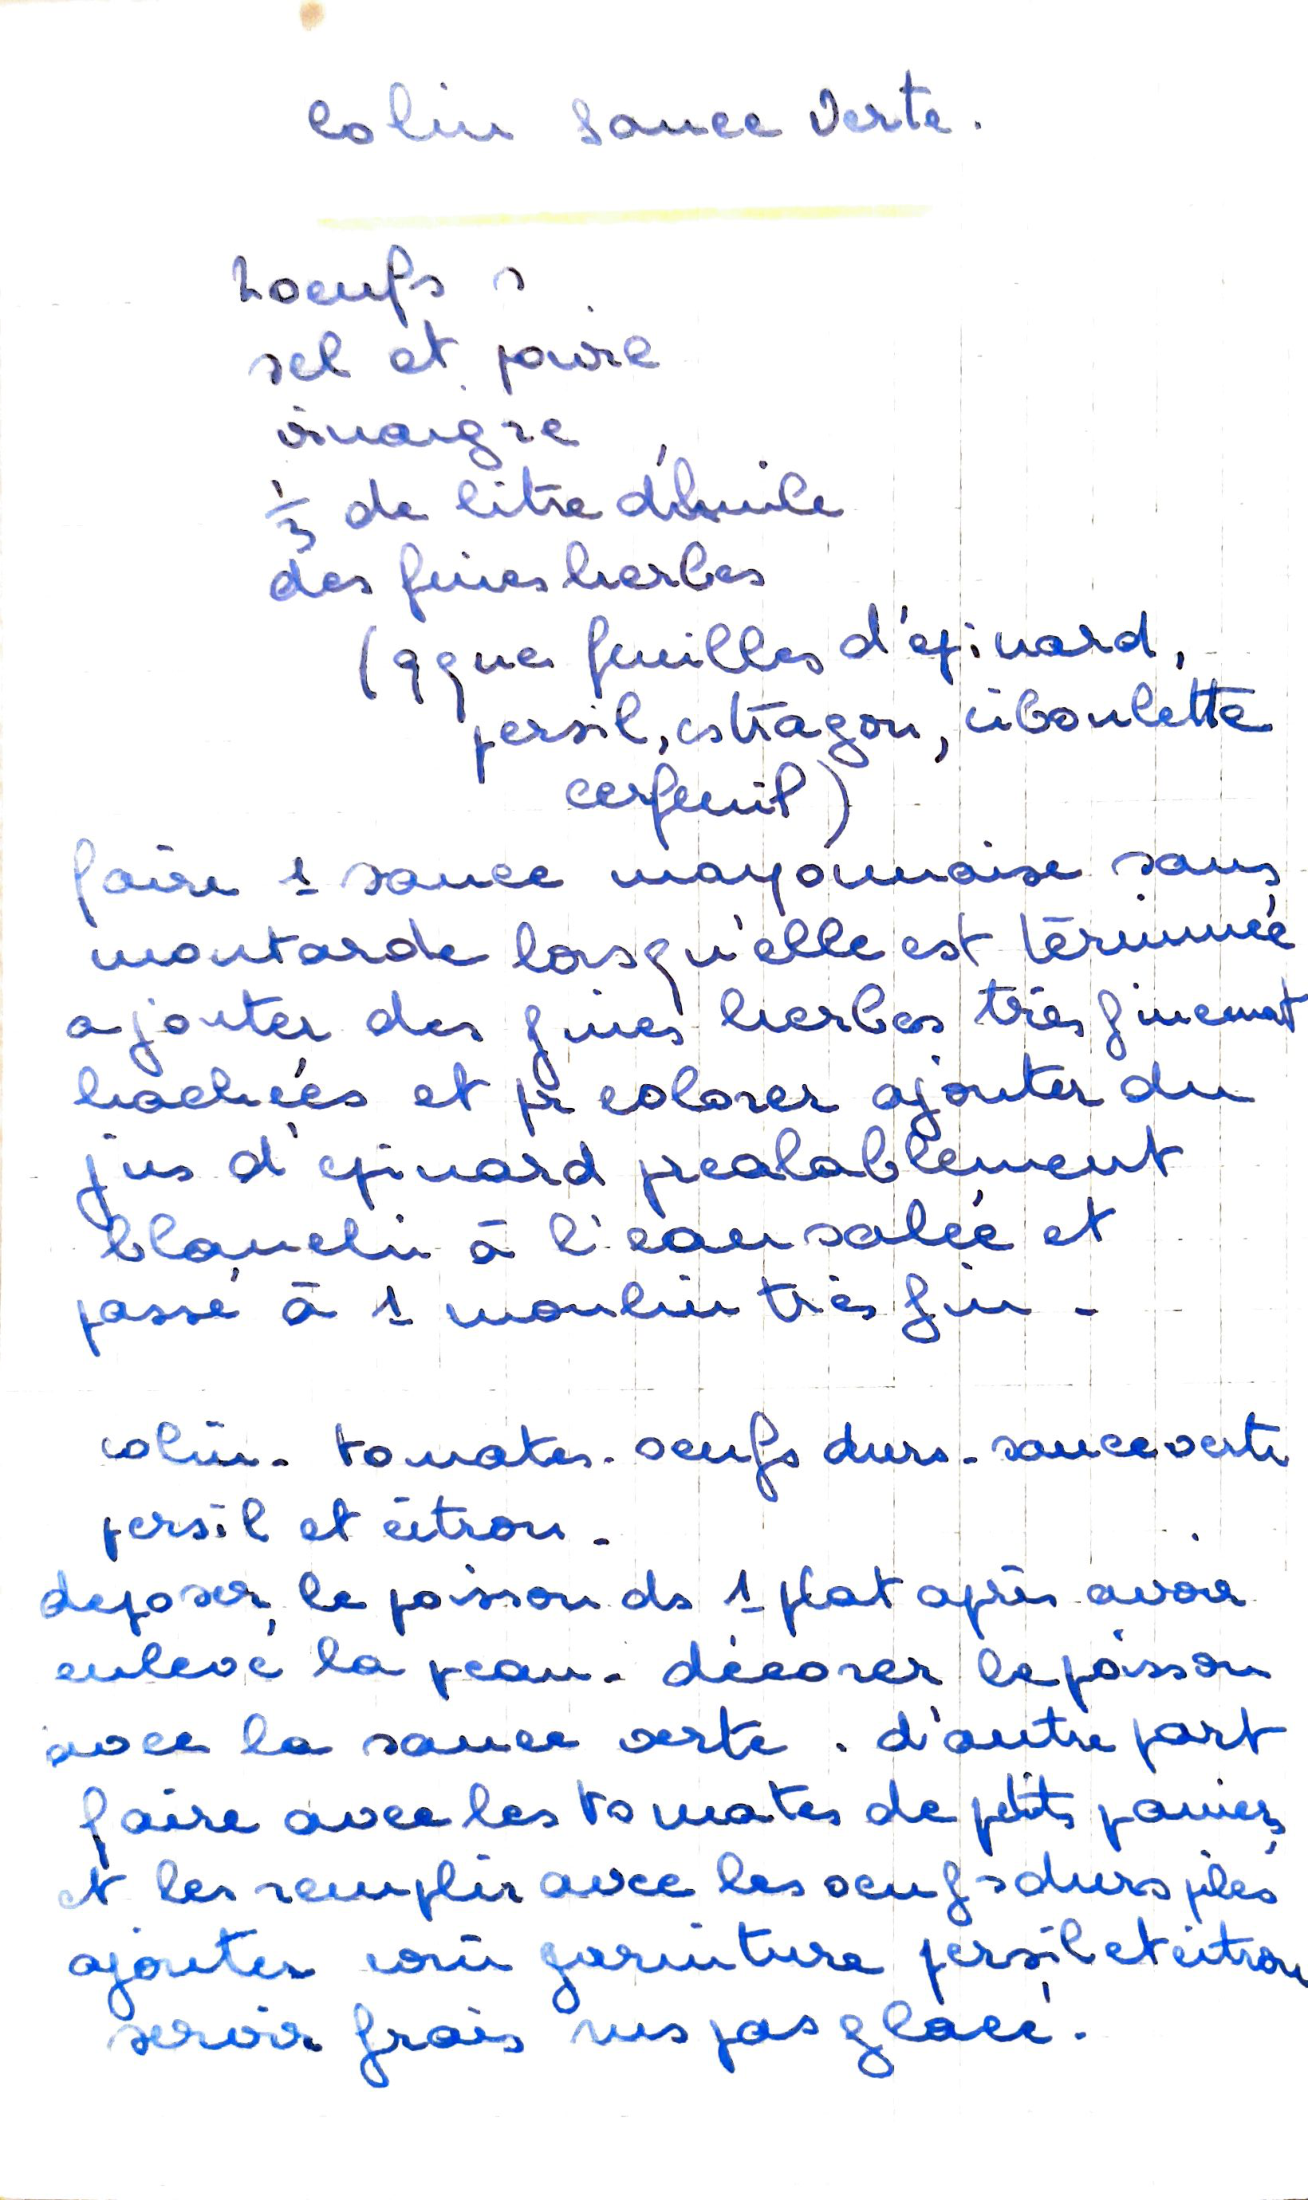 Colin Sauce Verte.
2 oeufs
sel et poivre
vinaigre
1/3 de litre d'huile
des fines herbes
(qque feuilles d'epinard,
persil, estragon, ciboulette
cerfeuil)
faire 1 sauce mayonnaise sans
moutarde lorsqu'elle est terminée
ajouter des fines herbes très finement
hachées et pr colorer ajouter du
jus d'epinard prealablement
blanchi à l'eau salée et
passé à 1 moulin très fin -
colin - tomates - oeufs durs - sauce verte
persil et citron -
deposer le poisson ds 1 plat après avoir
enlevé la peau - décorer le poisson
avec la sauce verte . d'autre part
faire avec les tomates de petits paniers
et les remplir avec les oeufs durs pilés
ajouter garniture persil et citron
servir frais pas glacé.